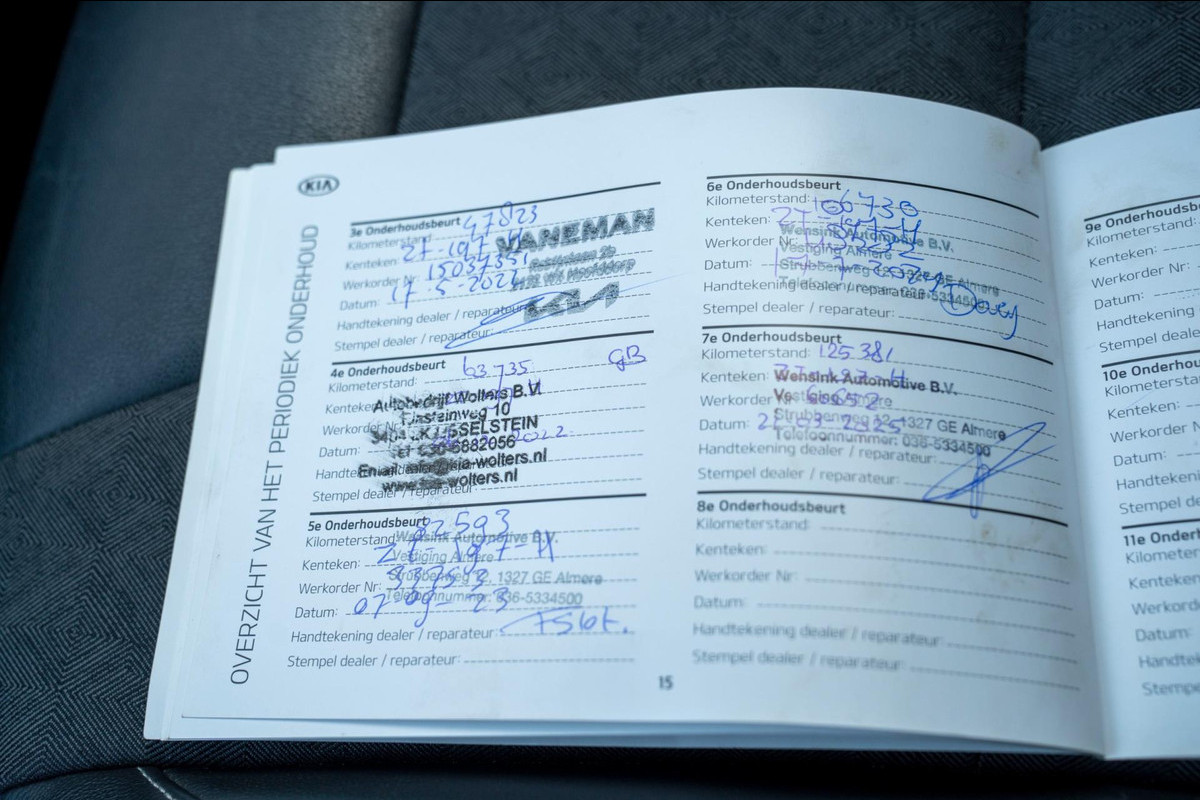 KIA
OVERZICHT VAN HET PERIODIEK ONDERHOUD
3e Onderhoudsbeurt
Kilometerstand: 47823
Kenteken:
Werkorder Nr:
Datum: 17-5-202
Handtekening dealer / reparateur:
Stempel dealer / reparateur:
VANEMAN
Hoofddorp
KIA
4e Onderhoudsbeurt
Kilometerstand: 63.735
GB
Kenteken:
Werkorder Nr:
Datum: 2022
Stempel dealer / reparateur:
Autobedrijf Wolters B.V.
Einsteinweg 10
IJSSELSTEIN
www.kia-wolters.nl
5e Onderhoudsbeurt
Kilometerstand: 82593
Kenteken:
Werkorder Nr: 337553
Datum: 07-09-23
Handtekening dealer / reparateur:
Stempel dealer / reparateur:
Wensink Automotive B.V.
Vestiging Almere
Strubbenweg 12, 1327 GE Almere
Telefoonnummer: 036-5334500
6e Onderhoudsbeurt
Kilometerstand: 106730
Kenteken:
Werkorder Nr:
Datum:
Handtekening dealer / reparateur:
Stempel dealer / reparateur:
Wensink Automotive B.V.
Vestiging Almere
Strubbenweg 12, 1327 GE Almere
Telefoonnummer: 036-5334500
7e Onderhoudsbeurt
Kilometerstand: 125.381
Kenteken:
Werkorder Nr:
Datum: 2025
Handtekening dealer / reparateur:
Stempel dealer / reparateur:
Wensink Automotive B.V.
Vestiging Almere
Strubbenweg 12, 1327 GE Almere
Telefoonnummer: 036-5334500
8e Onderhoudsbeurt
Kilometerstand:
Kenteken:
Werkorder Nr:
Datum:
Handtekening dealer / reparateur:
Stempel dealer / reparateur:
15
9e Onderhoudsb
Kilometerstand:
Kenteken:
Werkorder Nr:
Datum:
Handtekening
Stempel dealer
10e Onderhoud
Kilometerstand
Kenteken:
Werkorder Nr
Datum:
Handtekenin
Stempel de
11e Onder
Kilometer
Kenteken
Werkord
Datum:
Handtek
Stempe